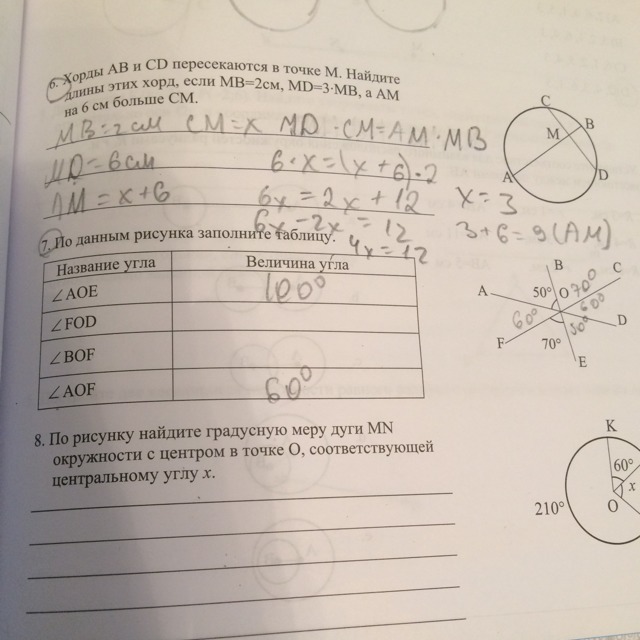 6. Хорды АВ и CD пересекаются в точке М. Найдите
длины этих хорд, если МВ=2см, MD=3·МВ, а АМ
на 6 см больше СМ.
MB=2см CM=x MD·CM=AM·MB
MD=6см 6·x=(x+6)·2
AM=x+6 6x=2x+12 x=3
6x-2x=12 3+6=9(AM)
4x=12
C
B
M
A
D
7. По данным рисунка заполните таблицу.
Название угла Величина угла
∠AOE 100°
∠FOD
∠BOF
∠AOF 60°
B C
A 50° O 70°
60°
60° 50° D
F 70°
E
8. По рисунку найдите градусную меру дуги MN
окружности с центром в точке О, соответствующей
центральному углу x.
K
60°
x
O
210°